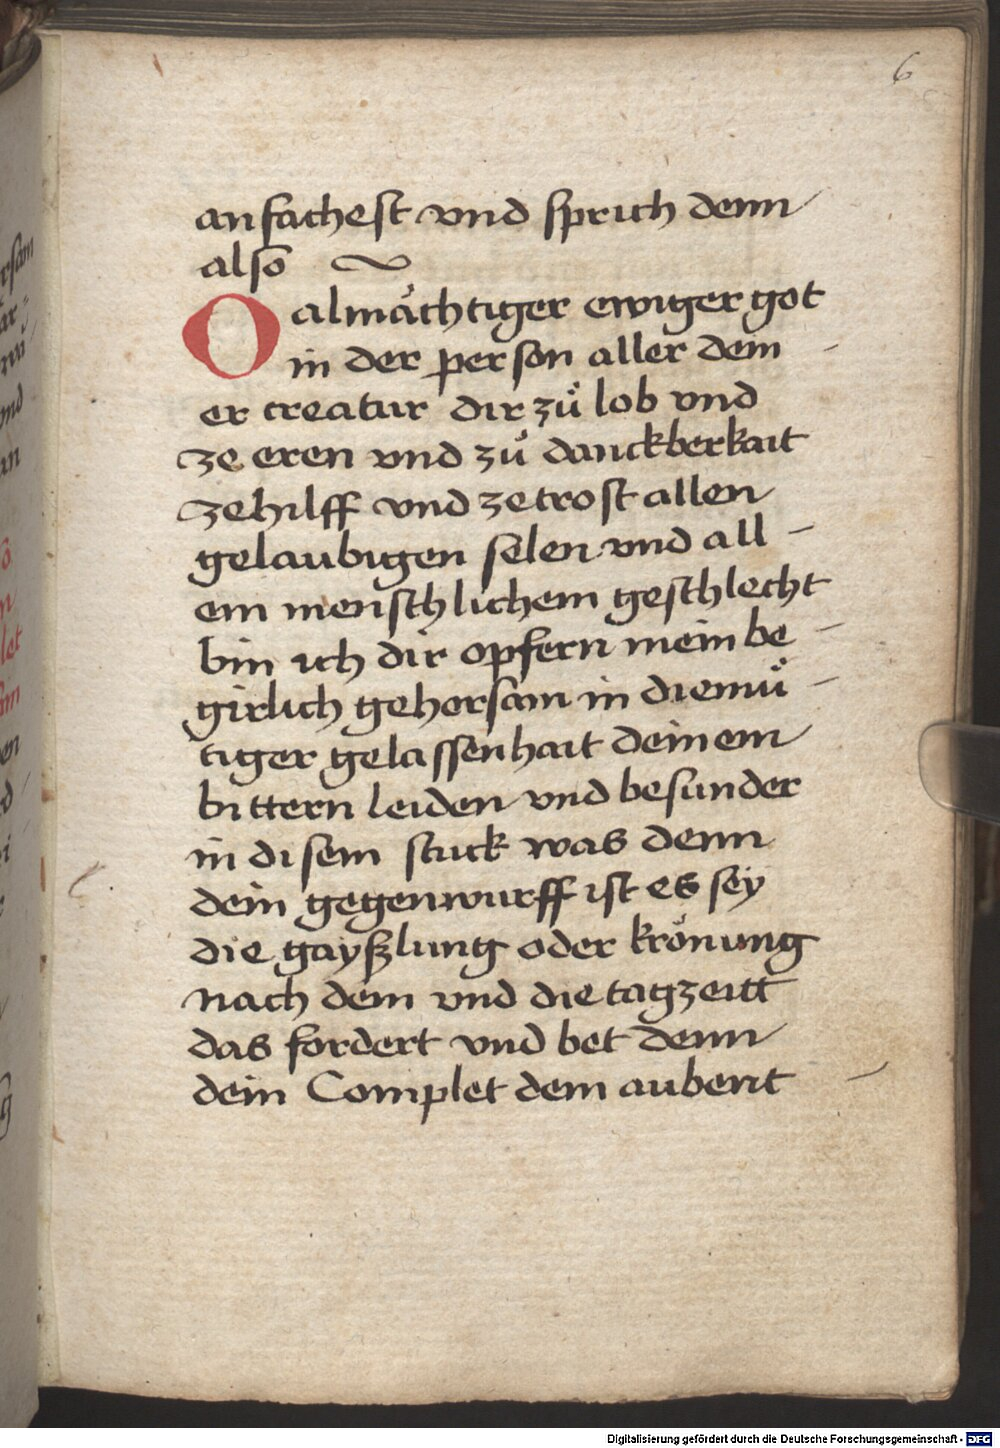 6
anfachest vnd sprich denn
also
O almächtiger ewiger got
in der person aller dein
er creatur dir zuͦ lob vnd
ze eren vnd zuͦ danckberkait
ze hilff vnd ze trost allen
gelaubigen selen vnd all
em menschlichem geschlecht
bin ich dir opfern mein be
girlich gehorsam in diemuͤ
tiger gelassenhait deinem
bittern leiden vnd besunder
in disem stuck was denn
dein gegenwurff ist es sey
die gayszlung oder krönung
nach dem vnd die tagzeitt
das fordert vnd bet denn
dein Complet dem aubent
Digitalisierung gefördert durch die Deutsche Forschungsgemeinschaft - DFG